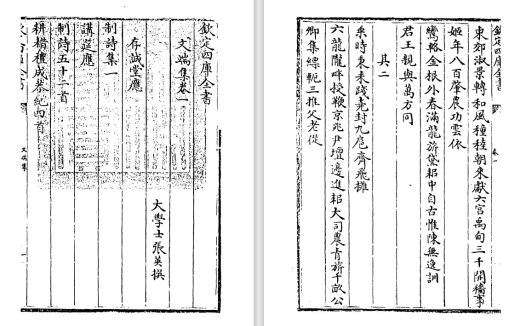 欽定四庫全書
文端集卷一
大學士張英撰
存誠堂應
制詩集一
講筵應
制詩五十二首
耕耤禮成恭紀四首
文端集
欽定四庫全書
卷一
東郊淑景轉和風種稑朝來獻六宮禹甸三千開穡事
姬年八百肇農功雲依
鸞輅金根外春滿龍旂黛耜中自古惟陳無逸訓
君王親與萬方同
其二
乘時秉耒踐堯封九扈齊飛擁
六龍隴畔授鞭京兆尹壇邊進耜大司農青旂千畝公
卿集縹軛三推父老從